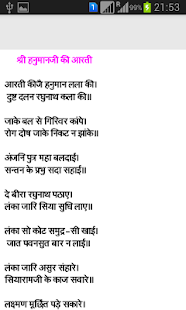 21:53
श्री हनुमानजी की आरती
आरती कीजै हनुमान लला की।
दुष्ट दलन रघुनाथ कला की॥
जाके बल से गिरिवर कांपे।
रोग दोष जाके निकट न झांके॥
अंजनि पुत्र महा बलदाई।
सन्तन के प्रभु सदा सहाई॥
दे बीरा रघुनाथ पठाए।
लंका जारि सिया सुधि लाए॥
लंका सो कोट समुद्र-सी खाई।
जात पवनसुत बार न लाई॥
लंका जारि असुर संहारे।
सियारामजी के काज सवारे॥
लक्ष्मण मूर्छित पड़े सकारे।